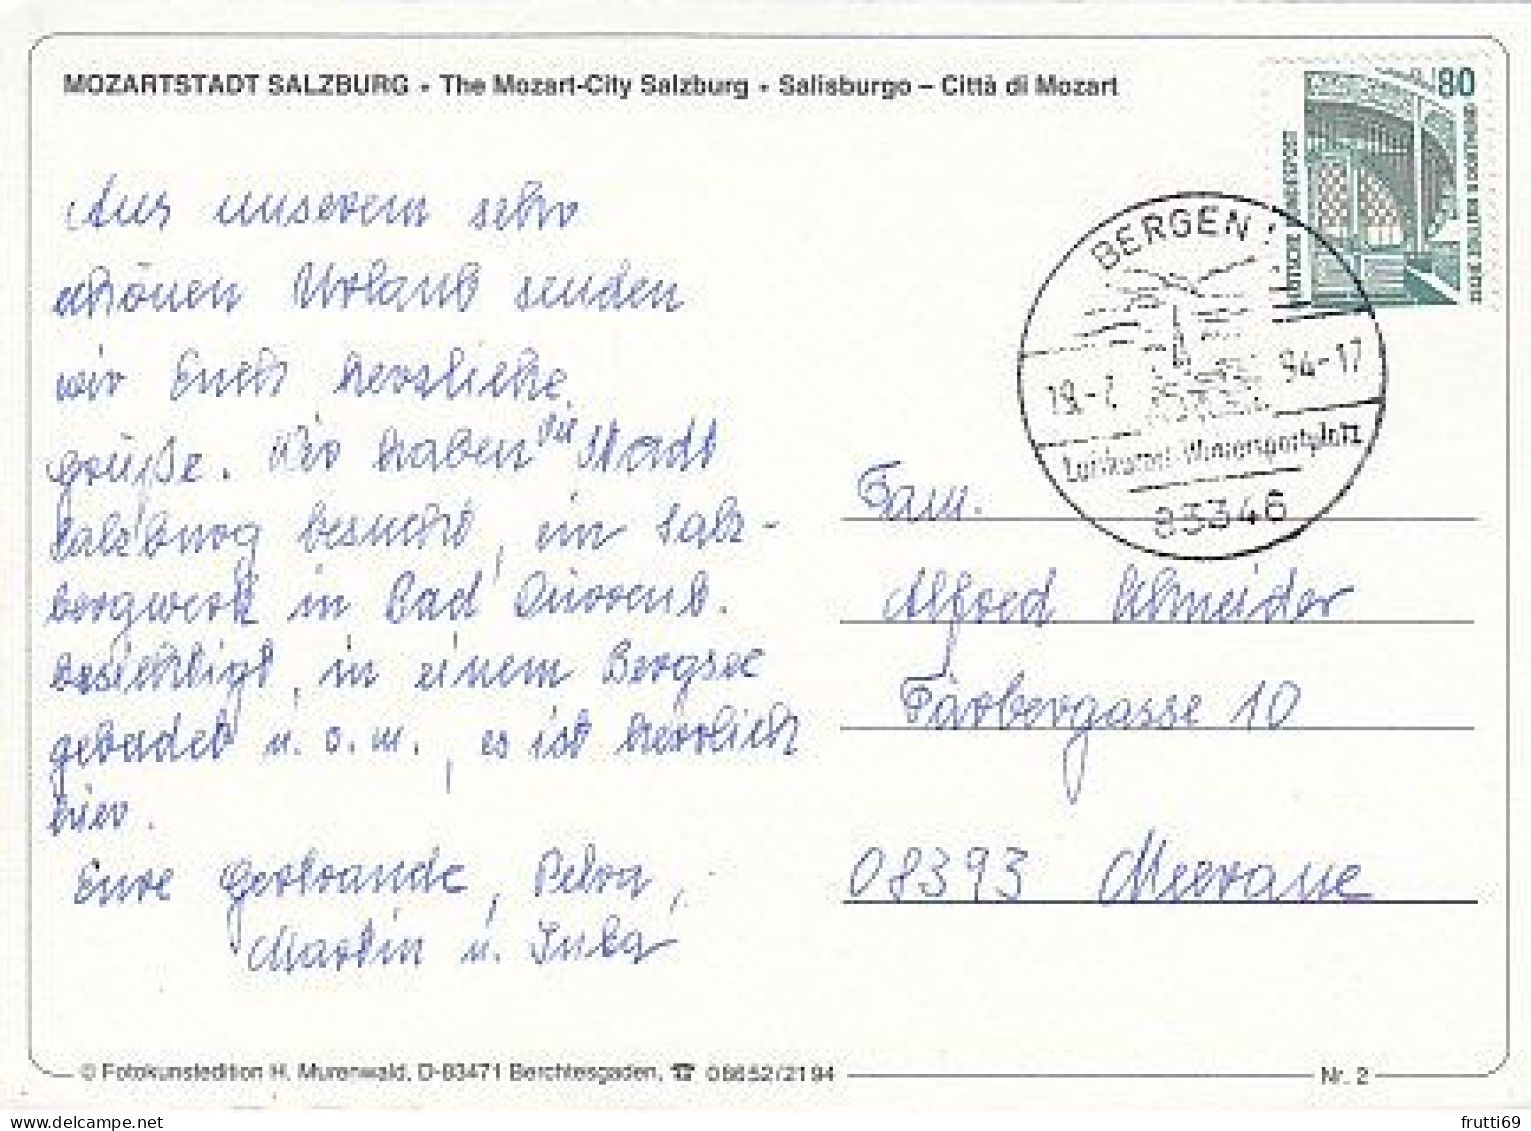 MOZARTSTADT SALZBURG • The Mozart-City Salzburg • Salisburgo – Città di Mozart
80
DEUTSCHE BUNDESPOST
ZECHE ZOLLERN II DORTMUND
BERGEN
94-17
Luftkurort-Wintersportplatz
83346
Aus unserem sehr
schönen Urlaub senden
wir Euch herzliche
Grüße. Wir haben die Stadt
Salzburg besucht, ein Salz-
bergwerk in Bad Dürrenb.
besichtigt, in einem Bergsee
gebadet u. s. w., es ist herrlich
hier.
Eure Gertraude, Petra,
Martin u. Jutta
Fam.
Alfred Schneider
Färbergasse 10
08393 Meerane
© Fotokunstedition H. Murenwald, D-83471 Berchtesgaden, ☎ 08652/2194
Nr. 2
frutti69